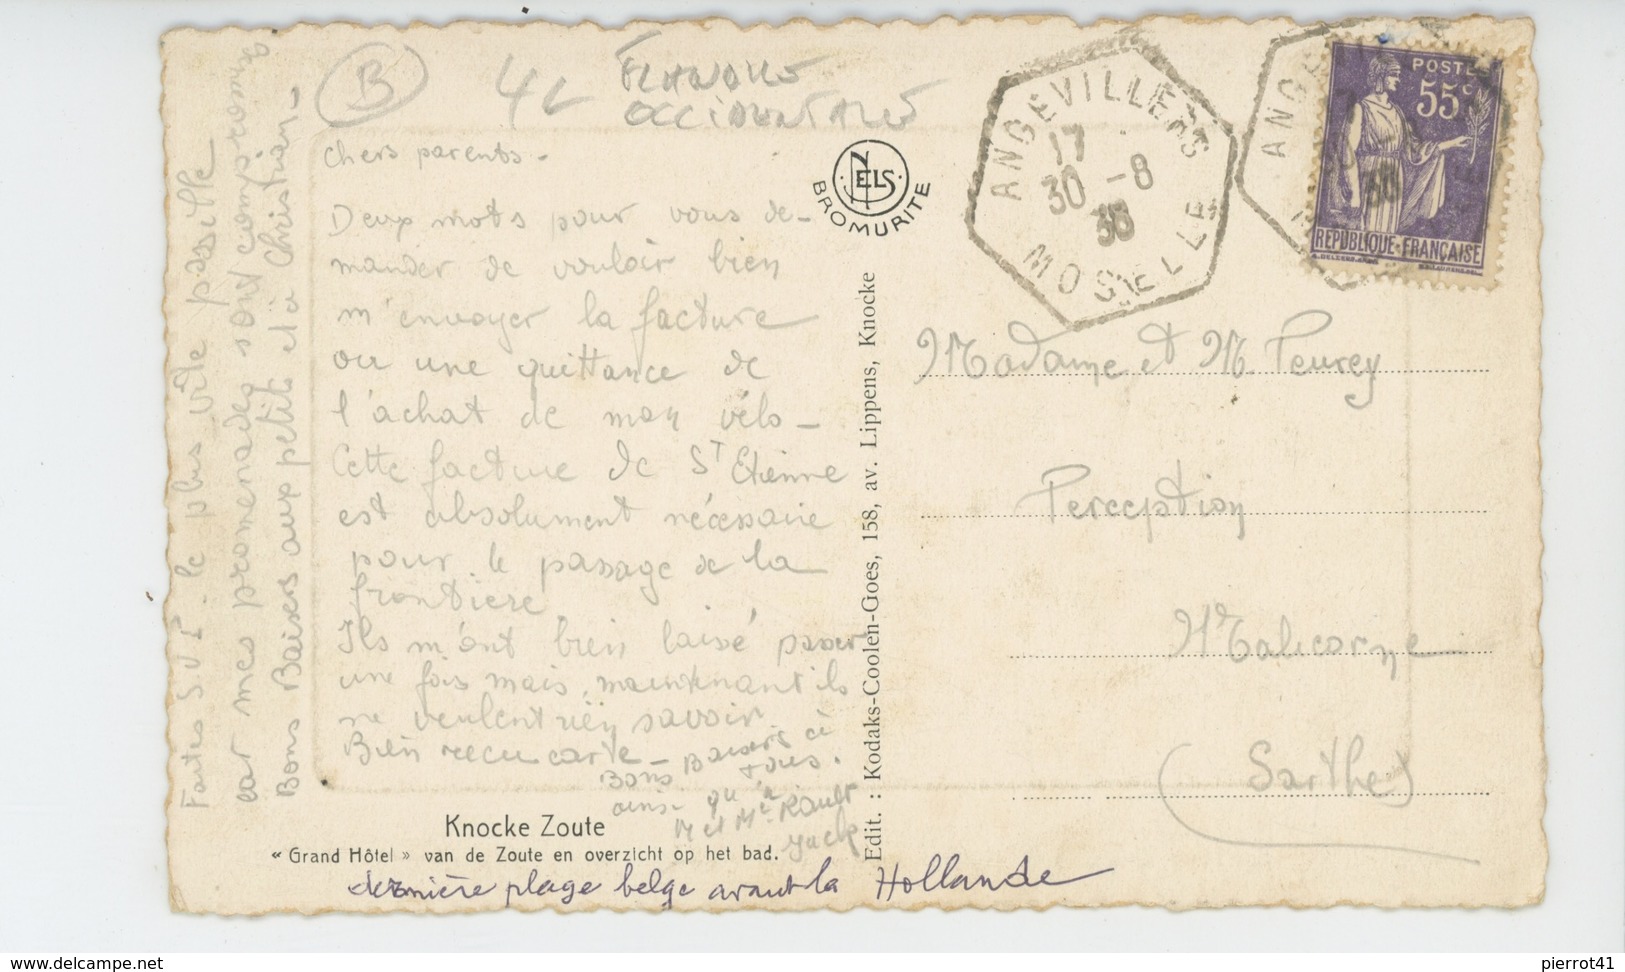 B
4L
FLANDRES
OCCIDENTALES
Chers parents -
Deux mots pour vous de-
mander de vouloir bien
m'envoyer la facture
ou une quittance de
l'achat de mon vélo -
Cette facture de ST Etienne
est absolument nécessaire
pour le passage de la
frontière
Ils m'ont bien laissé passer
une fois mais, maintenant ils
ne veulent rien savoir
Bien reçu carte -
Bons Baisers à
tous.
ainsi qu'à
M et Me Rault
Jack
Faites S.V.P. le plus vite possible
car mes promenades sont compromises
Bons Baisers aux petits et à Christian -
JELS
BROMURITE
Edit. : Kodaks-Coolen-Goes, 158, av. Lippens, Knocke
ANGEVILLERS
17
30 -8
38
MOSELLE
POSTES
55c
REPUBLIQUE-FRANÇAISE
Madame et M. Peurey
Perception
Malicorne
(Sarthe)
Knocke Zoute
« Grand Hôtel » van de Zoute en overzicht op het bad.
dernière plage belge avant la Hollande
www.delcampe.net
pierrot41